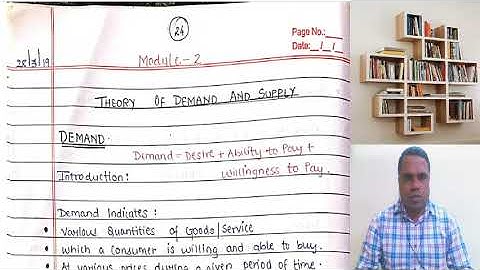 24
Page No.:
Date: _/_/_
28/3/19
Module - 2
THEORY OF DEMAND AND SUPPLY
DEMAND
Demand = Desire + Ability to Pay +
Willingness to Pay.
Introduction:
Demand Indicates:
• Various Quantities of Goods/Service
• which a consumer is willing and able to buy.
• At various prices during a given period of time.